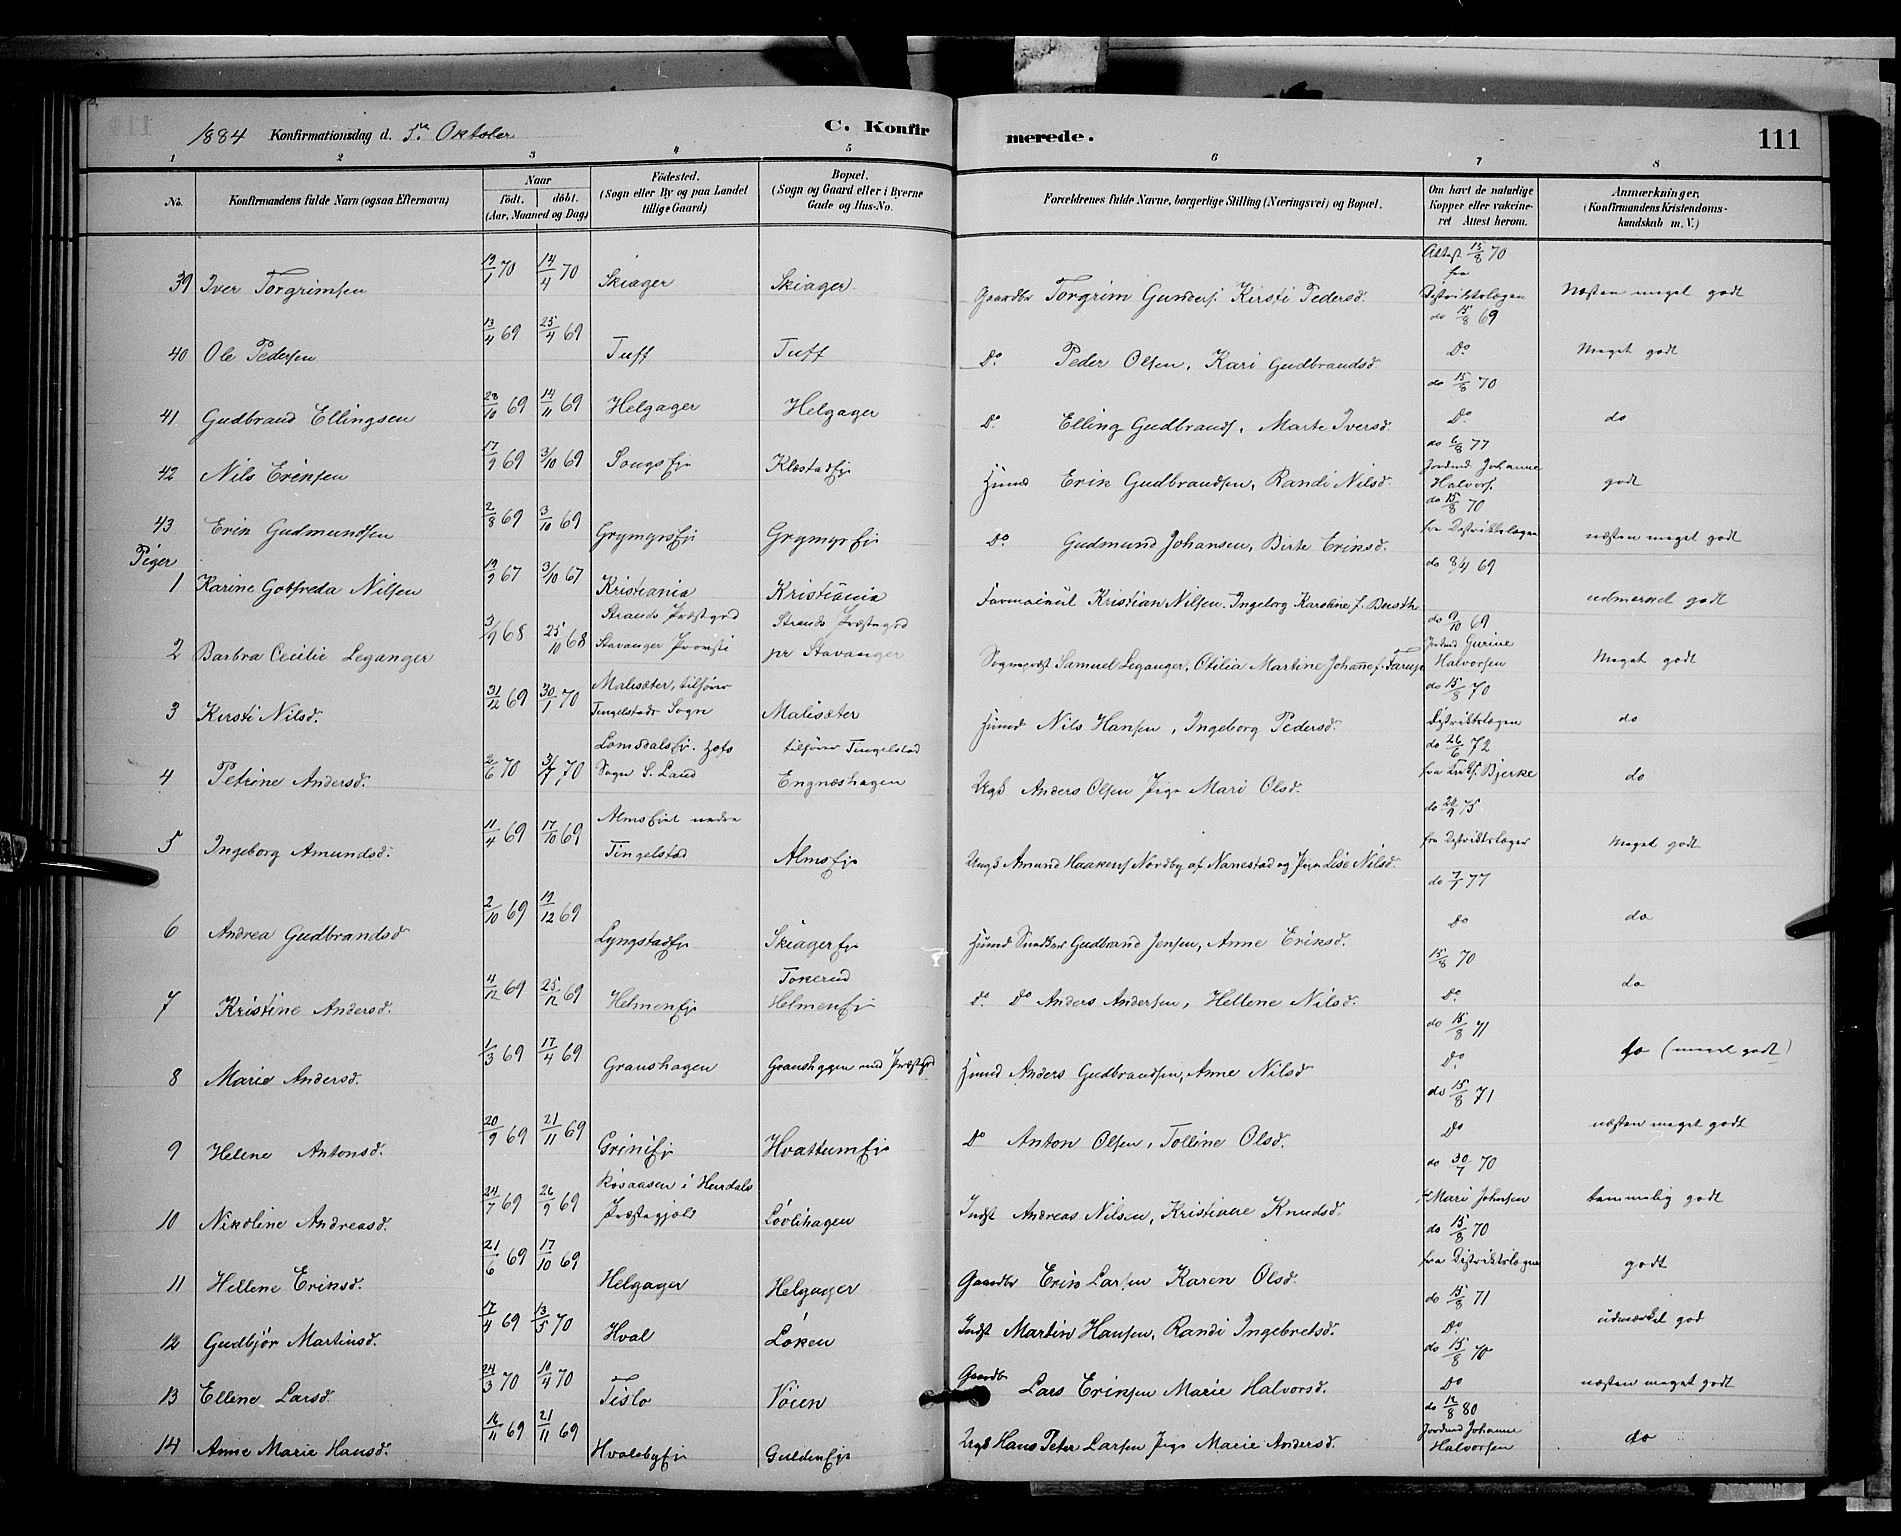 1884 Konfirmationsdag d. 5te Oktober C. Konfirmerede. 111
1 2 3 4 5 6 7 8
No. Konfirmandens fulde Navn (ogsaa Efternavn) Naar födt. döbt. (Aar, Maaned og Dag) Födested. (Sogn eller By og paa Landet tillige Gaard) Bopæl. (Sogn og Gaard eller i Byerne Gade og Hus-No. Forældrenes fulde Navne, borgerlige Stilling (Næringsvei) og Bopæl. Om havt de naturlige Kopper eller vakcineret Attest herom. Anmærkninger. (Konfirmandens Kristendomskundskab m. V.)
39 Iver Torgrimsen 19/1 70 14/4 70 Skiager Skiager Gaardbr Torgrim Gunders. Kirsti Pedersd. Attest 15/8 70 fra Distriktslægen Næsten meget godt
40 Ole Pedersen 13/4 69 25/4 69 Tuff Tuff Do. Peder Olsen, Kari Gudbrandsd. do 15/8 69 Do. Meget godt
41 Gudbrand Ellingsen 28/10 69 14/11 69 Helgager Helgager Do. Elling Gudbrands, Marte Iversd. do 15/8 70 Do. do
42 Nils Eriksen 17/9 69 3/10 69 Songsej Klæstadej Husmd Erik Gudbrandsen, Randi Nilsd. do 6/8 77 Jordmd Johanne Halvors. godt
43 Erik Gudmundsen 2/8 69 3/10 69 Grymyrsej Grymyrej Do. Gudmund Johansen, Birte Eriksd. do 15/8 70 fra Distriktslægen næsten meget godt
Piger
1 Karine Gotfreda Nilsen 19/9 67 3/10 67 Kristiania Kristiania Kristian Nilsen. Ingeborg Karoline f. do 8/4 69 udmerket godt
2 Barbra Cecilie Leganger 3/9 68 25/10 68 Strands Præstegrd Stavanger Provsti Strands Præstegrd pr Stavanger Sognepræst Samuel Leganger, Otilia Martine Johanne f. Farup do 9/10 69 Jordmd Gurine Halvorsen Meget godt
3 Kirsti Nilsd. 31/12 69 30/1 70 Malisæter, tilhører Tingelstads Sogn Malisæter tilhører Tingelstad Husmd Nils Hansen, Ingeborg Pedersd. do 15/8 70 Distriktslægen do
4 Petrine Andersd. 2/6 70 31/7 70 Lomsdalsej. Hofs Sogn S. Land Engnæshagen Ugk Anders Olsen Pige Mari Olsd. do 26/6 72 fra Bjerke do
5 Ingeborg Amundsd. 11/4 69 17/10 69 Almsejet nedre Tingelstad Almsej Ungk Amund Haakens Nordby af Nanestad og Pige Lise Nilsd. do 75 fra Distriktslægen Meget godt
6 Andrea Gudbrandsd 2/10 69 19/12 69 Lyngstadej Skiagerej Husmd Snedker Gudbrand Jensen, Anne Eriksd. do 7/1 77 Do do
7 Kristine Andersd. 4/12 69 25/12 69 Helmenej Tokerud Helmenej Do. Do Anders Andersen, Hellene Nilsd. 15/8 70 Do. do
8 Marie Andersd. 1/3 69 17/4 69 Granshagen Granshagen med Præstegd Husmd Anders Gudbrandsen, Anne Nilsd do 15/8 71 Do. do (meget godt)
9 Helene Antonsd. 20/9 69 21/11 69 Griniej Hvattumej Do Anton Olsen, Tolline Olsd. do 15/8 71 Do næsten meget godt
10 Nikoline Andreasd. 24/7 69 26/9 69 Røsaasen i Hurdals Præstegjeld Lovlihagen Indst Andreas Nilsen, Kristiane Knudsd. do 30/7 70 Mari Johnsen temmelig godt
11 Hellene Eriksd. 21/6 69 17/10 69 Helgager Helgager Gaardbr Erik Larsen Karen Olsd. do 15/8 70 fra Distriktslægen godt
12 Gudbjør Martinsd. 17/4 69 13/5 70 Hval Løken Indst Martin Hansen, Randi Ingebretsd. do 15/8 71 Do. udmærket god
13 Elline Larsd. 24/3 70 10/4 70 Tislo Vöien Gaardbr Lars Eriksen Marie Halvorsd. do 15/8 70 Do næsten meget godt
14 Anne Marie Hansd. 16/11 69 21/11 69 Hvalebyej Guldenej Ugk Hans Peter Larsen Pige Marie Andersd. do 12/8 80 Jordmd Johanne Halvorsen do